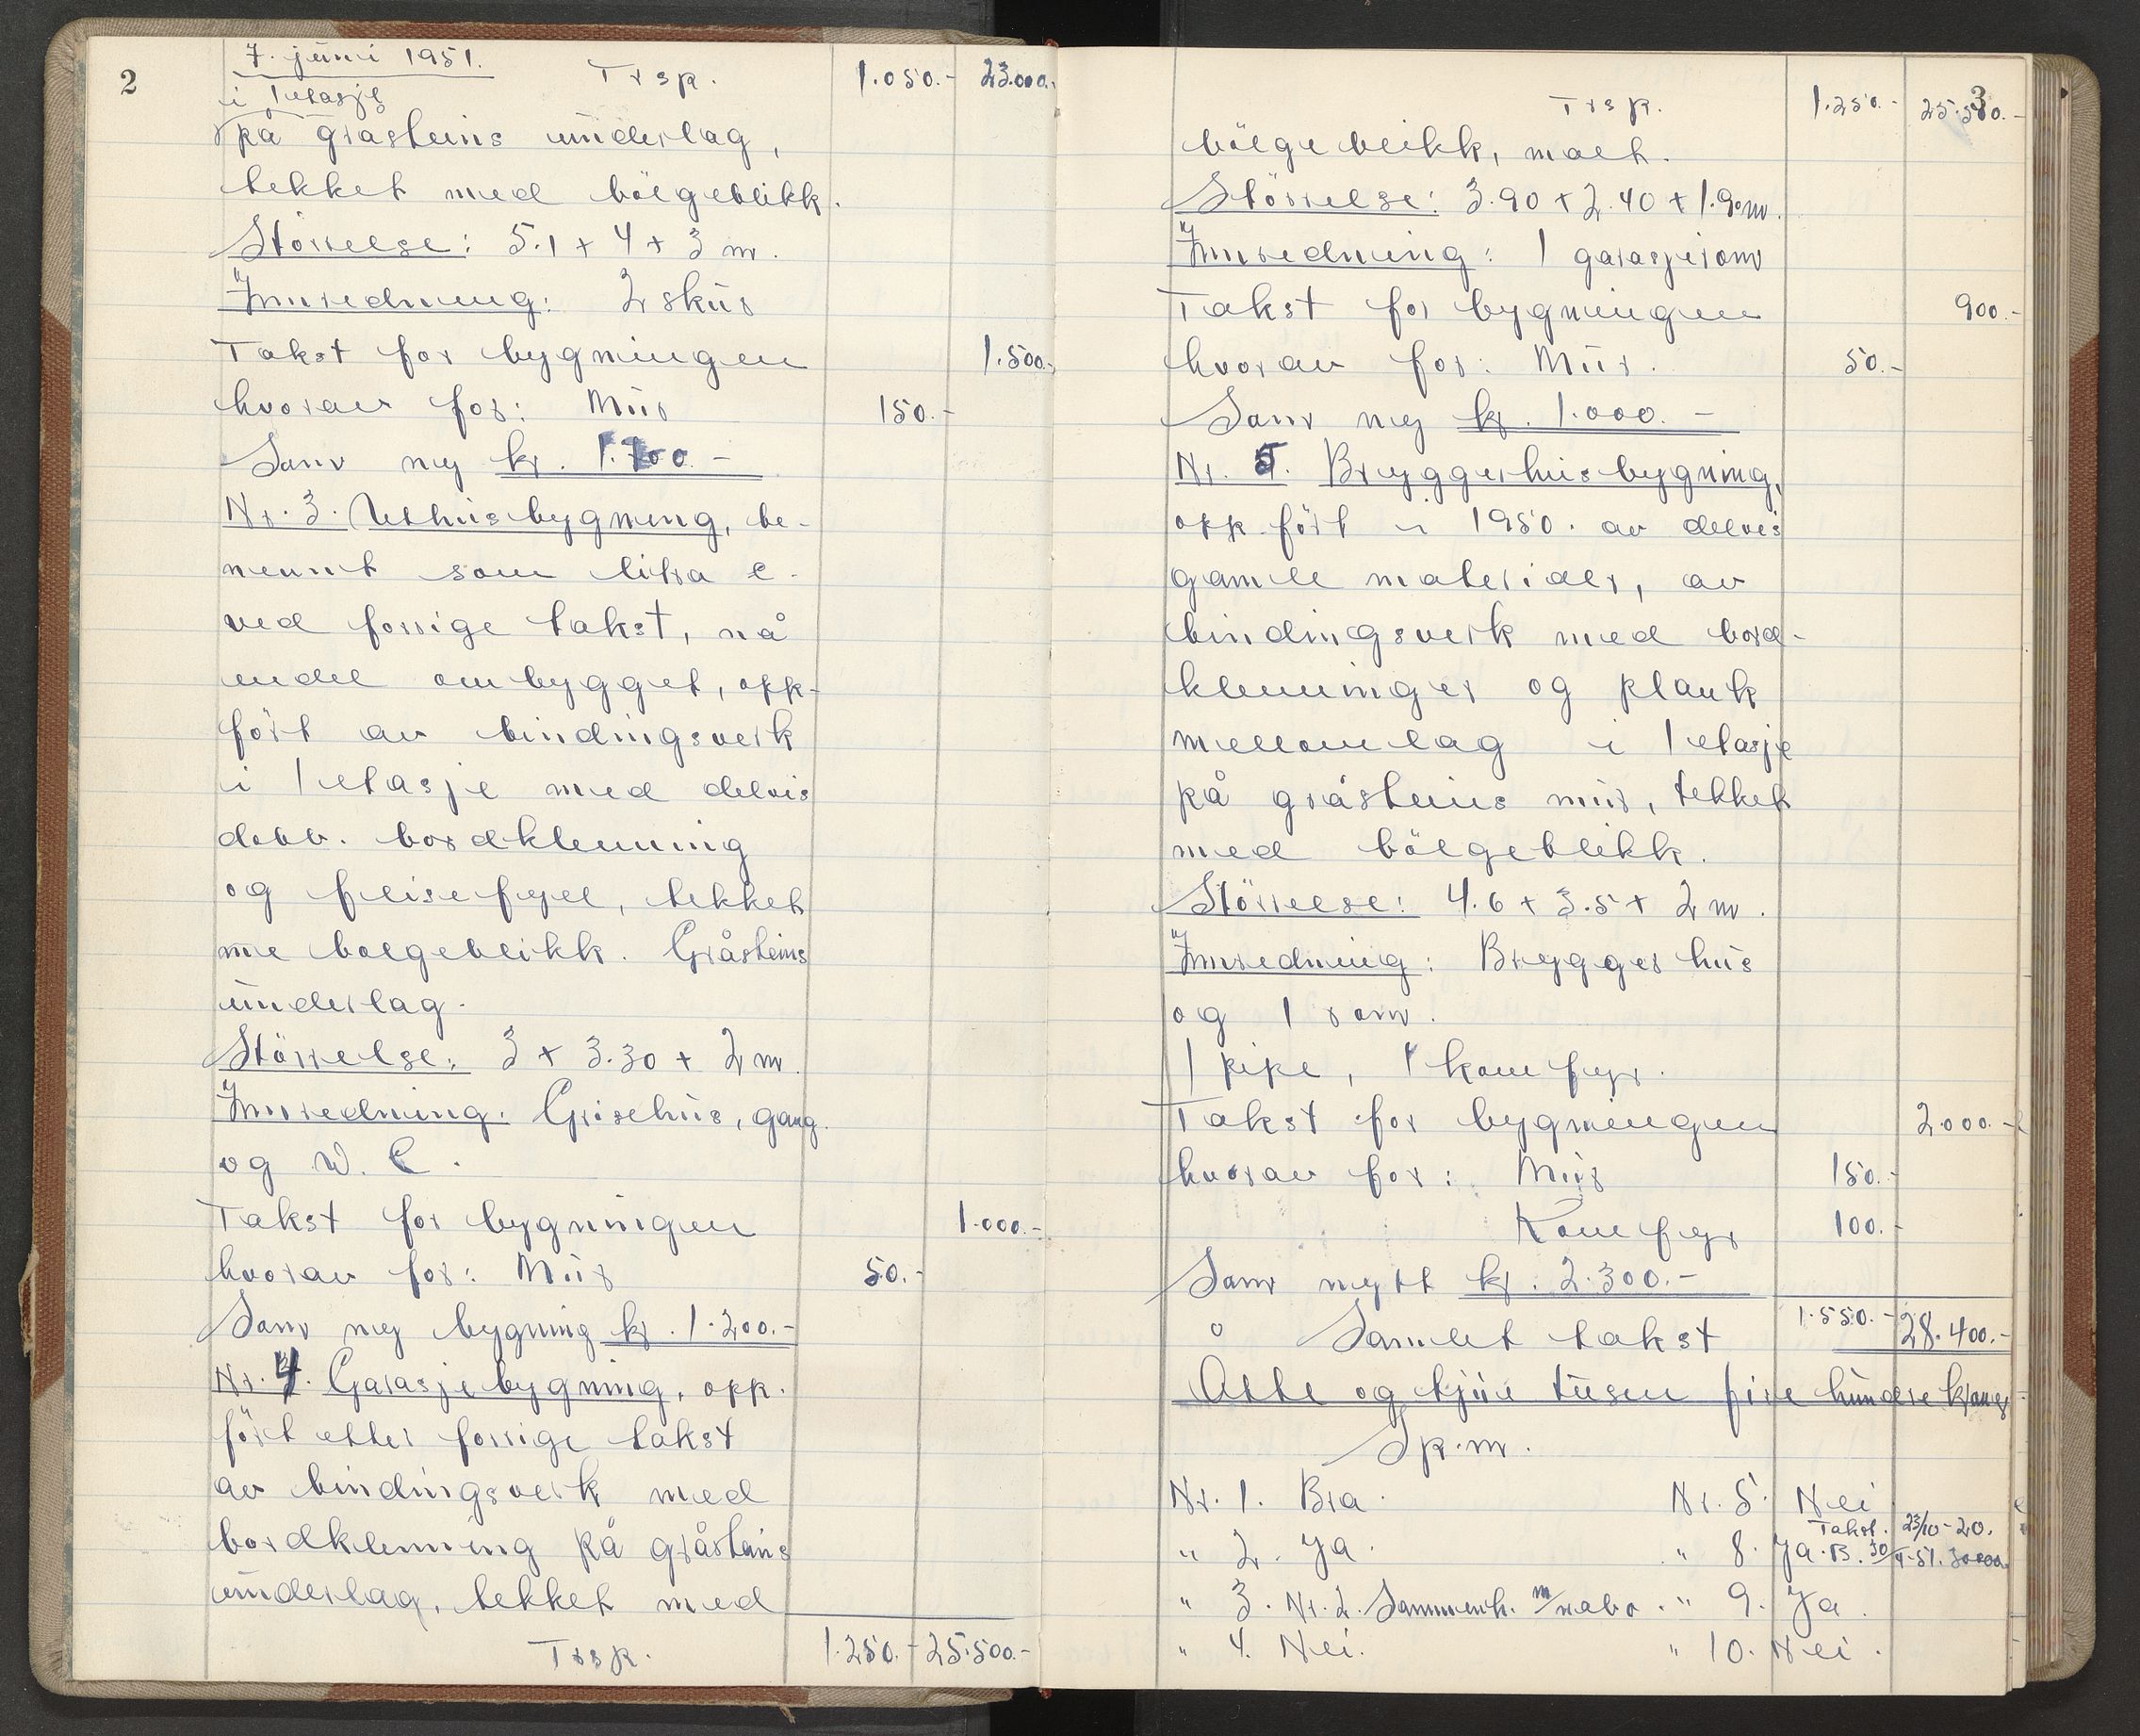 2
7. juni 1951.
Trsp. 1.050.- 23.000.-
i 1 etasje
på gråsteins underlag,
tekket med bölgeblikk.
Störrelse: 5.1 + 4 + 3 m.
Innredning: 2 skur
Takst for bygningen 1.500.-
hvorav for: Mur 150.-
Som ny kr. 1.700.-
Nr. 3. Uthusbygning, be-
nevnt som litra c.
ved forrige takst, nå
endel ombygget, opp-
fört av bindingsverk
i 1 etasje med delvis
dobb. bordkledning
og flisefyll, tekket
me bølgeblikk. Gråsteins
underlag.
Störrelse: 3 + 3.30 + 2 m.
Innredning: Grisehus, gang
og W. C.
Takst for bygningen 1.000.-
hvorav for: Mur 50.-
Som ny bygning kr. 1.200.-
Nr. 4. Garasjebygning, opp-
fört etter forrige takst
av bindingsverk med
bordkledning på gråsteins
underlag, tekket med
Trsp. 1.250.- 25.500.-
3
Trsp. 1.250.- 25.500.-
bölgeblikk, malt.
Störrelse: 3.90 + 2.40 + 1.90 m.
Innredning: 1 garasjerom
Takst for bygningen 900.-
hvorav for: Mur. 50.-
Som ny kr. 1.000.-
Nr. 5. Bryggerhusbygning,
oppfört i 1950. av delvis
gamle materialer, av
bindingsverk med bord-
kledninger og plank
mellomlag i 1 etasje
på gråsteins mur, tekket
med bölgeblikk.
Störrelse: 4.6 + 3.5 + 2 m.
Innredning: Bryggerhus
og 1 rom.
1 pipe, 1 komfyr.
Takst for bygningen 2.000.-
hvorav for: Mur 150.-
Komfyr 100.-
Som nytt kr. 2.300.-
Samlet takst 1.550.- 28.400.-
Åtte og tjue tusen fire hundre kroner
Sp.m.
Nr. 1. Bra. Nr. 5. Nei
" 2. Ja. " 8. Ja. Takst. 23/10-20. B. 30/4-51. 30000
" 3. Nr. 2. Sammenh. m/nabo. " 9. Ja.
" 4. Nei. " 10. Nei.